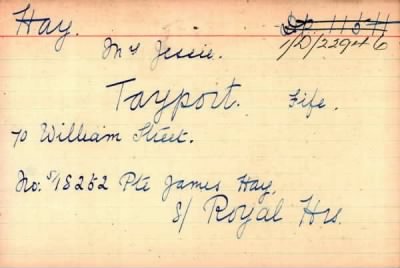 Hay.
1/D/22946
Mrs Jessie.
Tayport. Fife.
70 William Street.
No: S/18252 Pte James Hay,
8/ Royal Hrs.